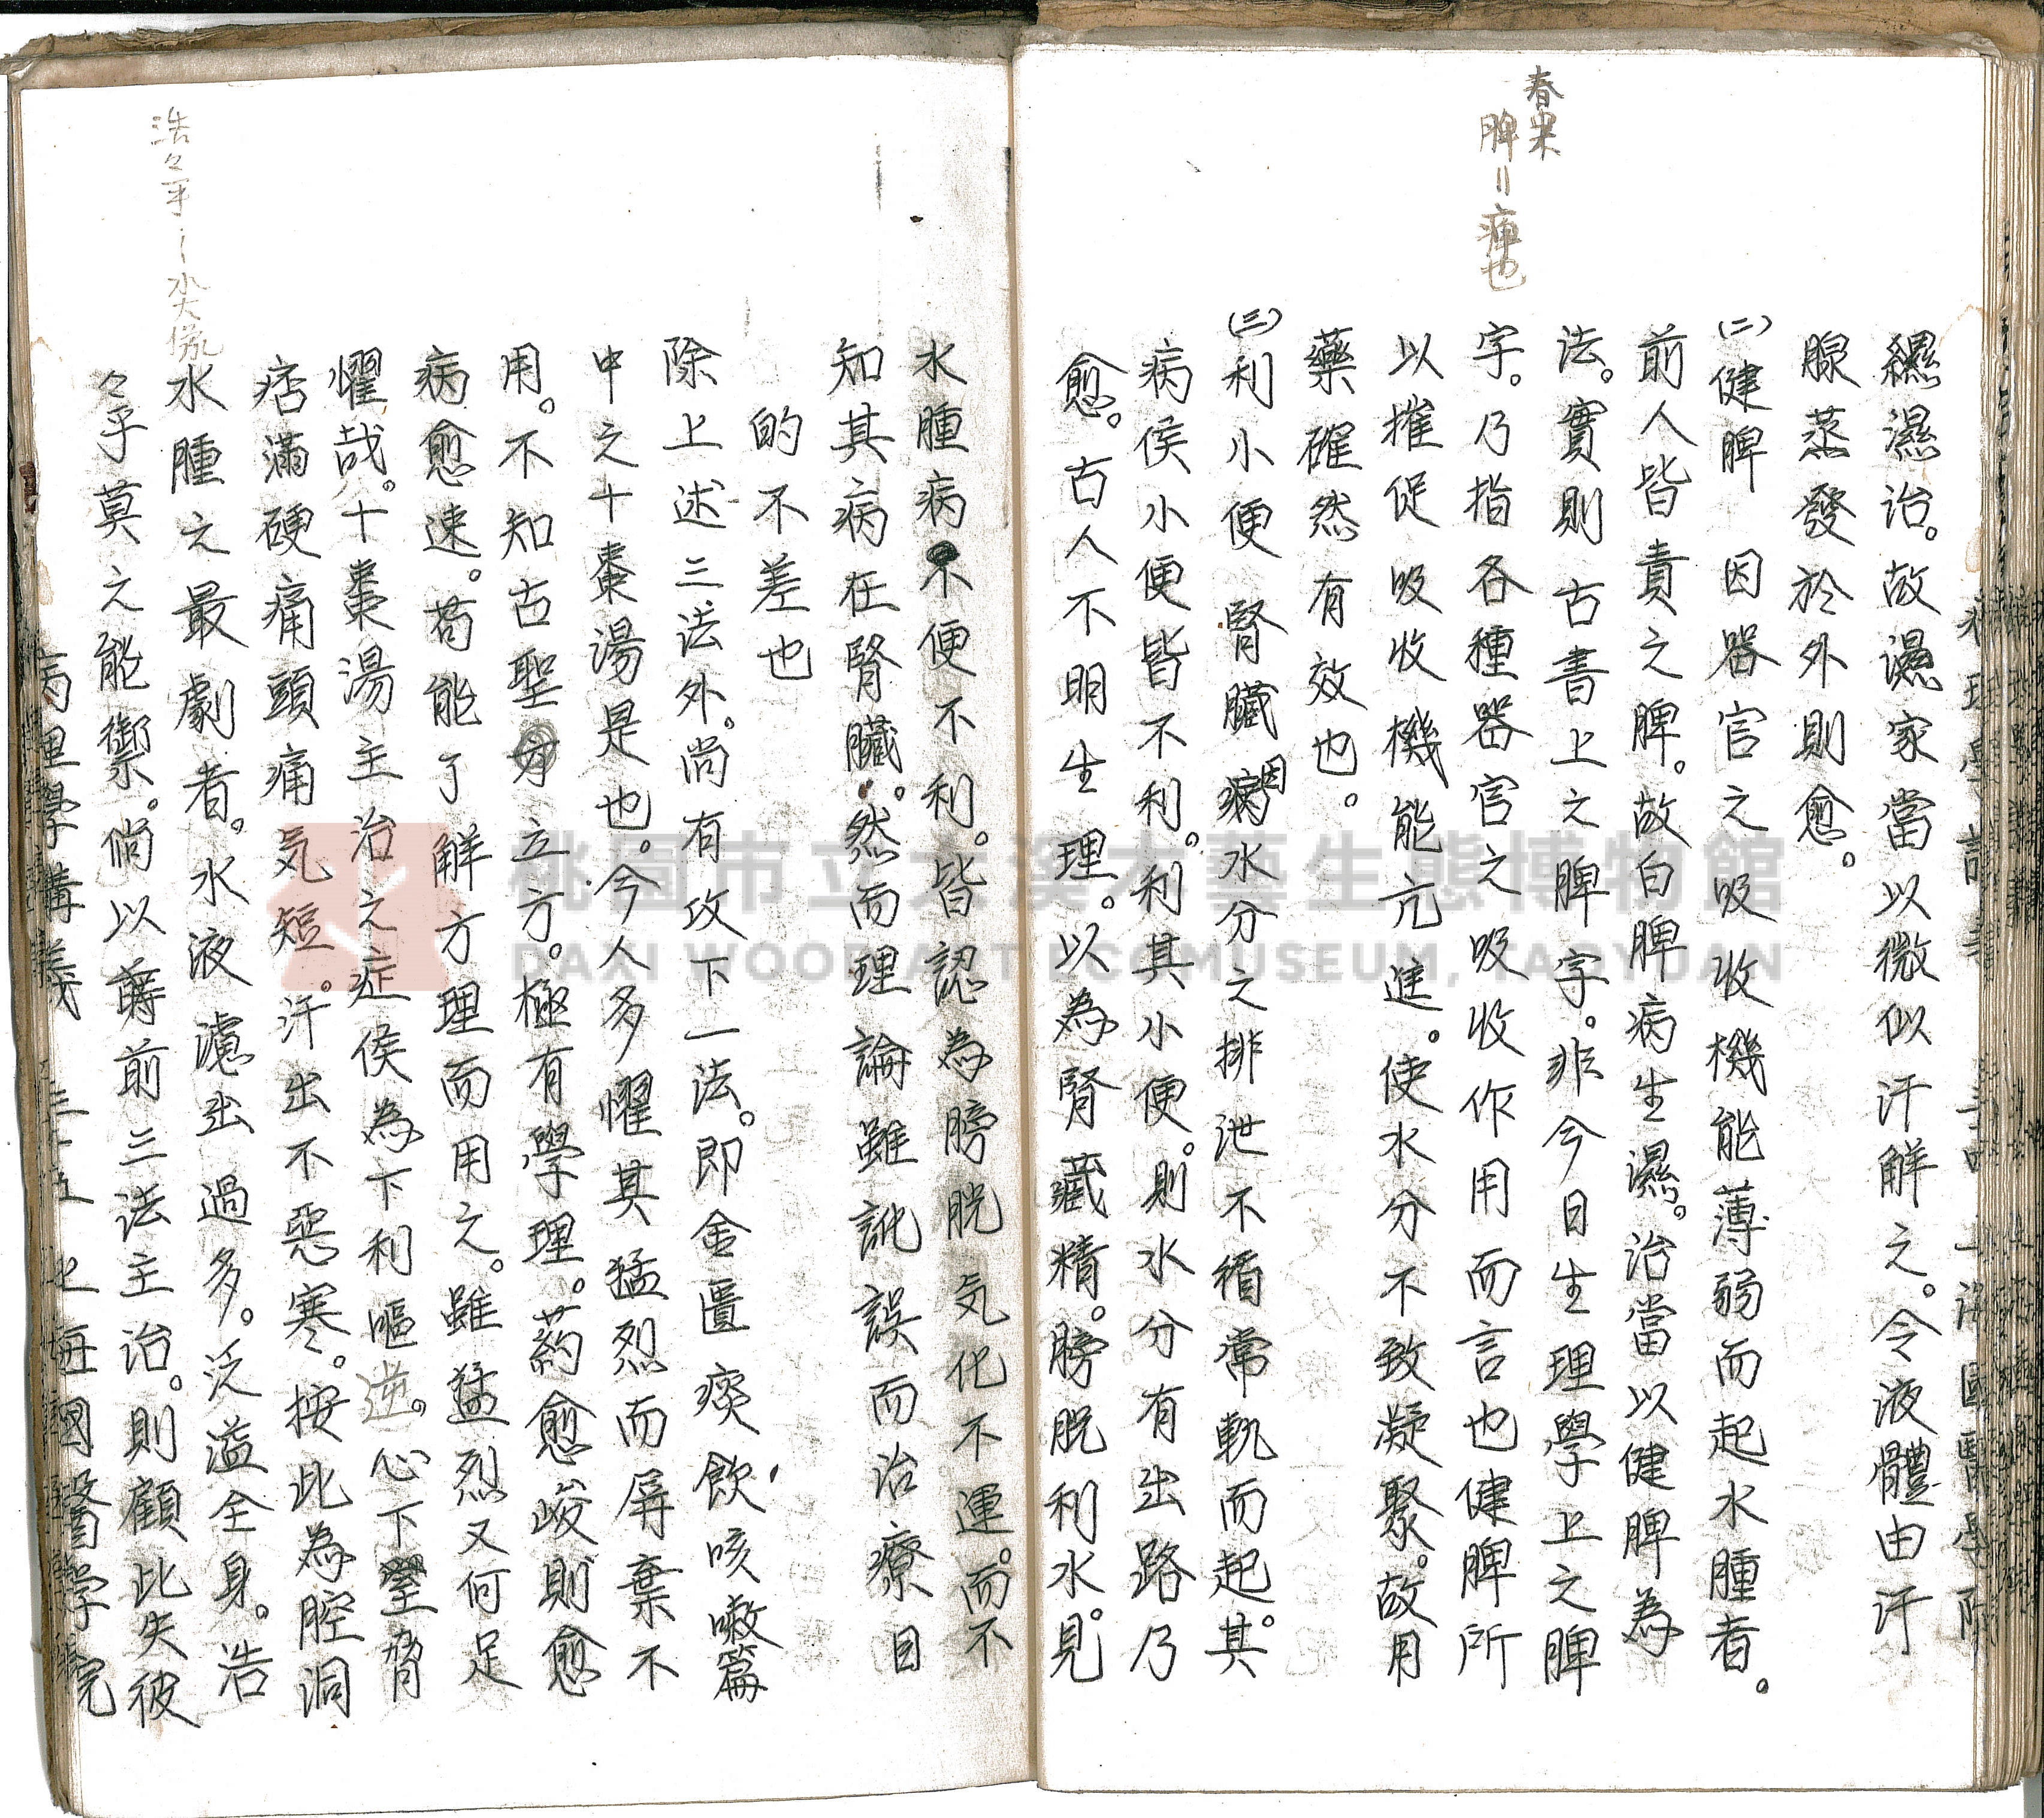 春米
脾=痺也
濕治。故濕家當以微似汗解之。令液體由汗
腺蒸發於外則愈。
(二)健脾 因器官之吸收機能薄弱而起水腫者。
前人皆責之脾。故白脾病生濕。治當以健脾為
法。實則古書上之脾字。非今日生理學上之脾
字。乃指各種器官之吸收作用而言也健脾所
以摧促吸收機能亢進。使水分不致凝聚。故用
藥確然有效也。
(三)利小便 腎臟病因水分之排泄不循常軌而起。其
病侯小便皆不利。利其小便。則水分有出路乃
愈。古人不明生理。以為腎藏精。膀胱利水。見
水腫病不便不利。皆認為膀胱気化不運。而不
知其病在腎臟。然而理論雖訛誤而治療目
的不差也
除上述三法外。尚有攻下一法。即金匱痰飲咳嗽篇
中之十棗湯是也。今人多懼其猛烈而屏棄不
用。不知古聖立方。極有學理。药愈峻則愈
病愈速。苟能了解方理而用之。雖猛烈又何足
懼哉。十棗湯主治之症侯為下利嘔逆。心下脅
痞滿硬痛頭痛気短。汗出不惡寒。按此為腔洞
水腫之最劇者。水液濾出過多。泛溢全身。浩
々乎莫之能禦。倘以蒓前三法主治。則顧此失彼
浩々乎……水大像
病理學講義 上海國醫學院